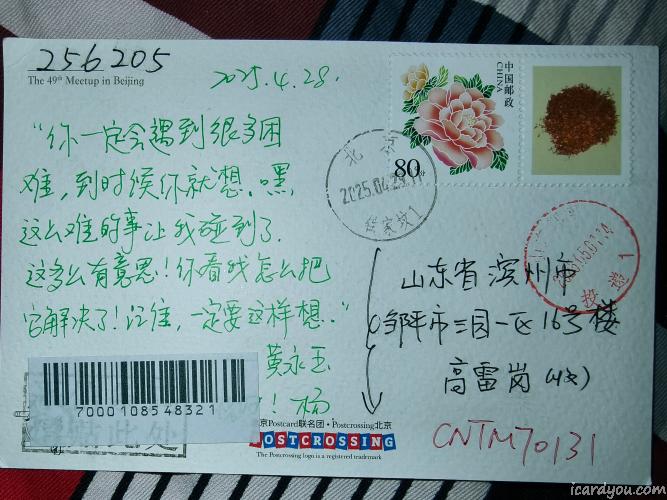 256205
The 49th Meetup in Beijing
2025.4.28.
“你一定会遇到很多困
难，到时候你就想，嘿，
这么难的事让我碰到了，
这多么有意思！你看我怎么把
它解决了！记住，一定要这样想..”
黄永玉
! 杨
7000108548321
贴此处
中国邮政
CHINA
80分
北京
2025.04.29.
投递 1
山东省滨州市
邹平市三园一区16号楼
高雷岗(收)
CNTM70131
京Postcard联名团·Postcrossing北京
POSTCROSSING
The Postcrossing logo is a registered trademark
icardyou.com